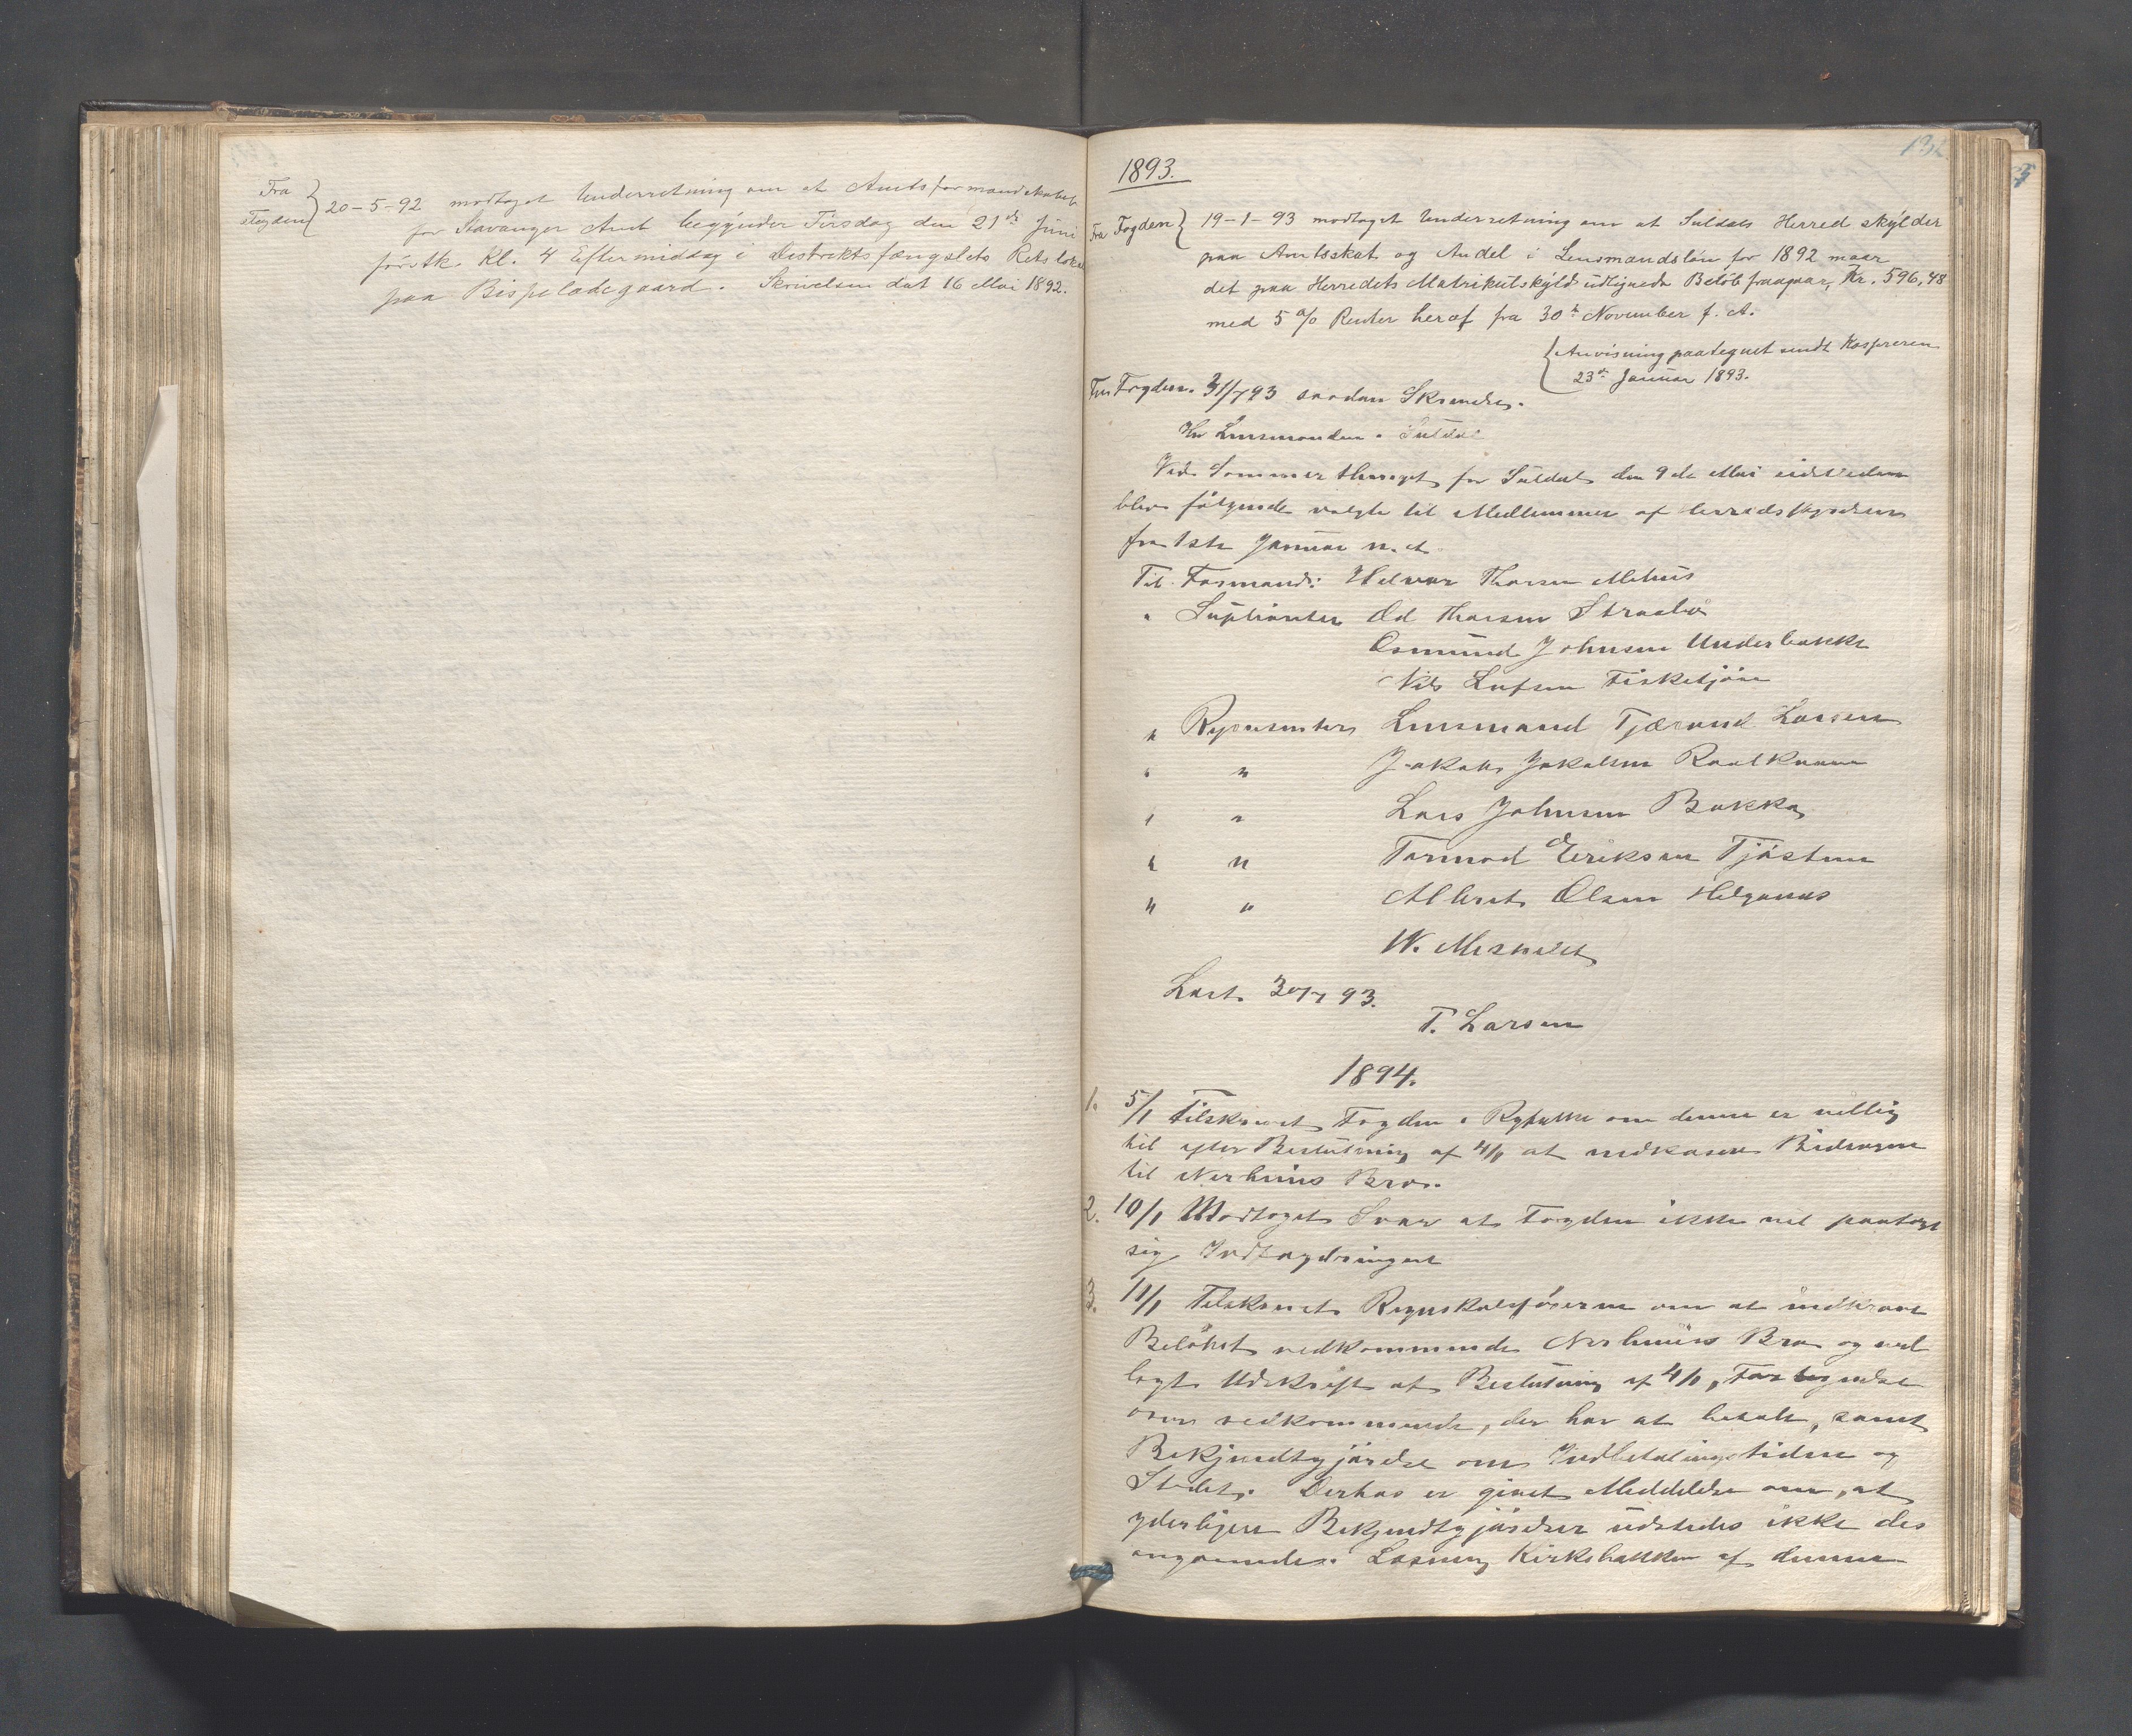 Fra
Fogden
20-5-92 modtaget Underretning om at Amtsformandskabet
for Stavanger Amt begynder Tirsdag den 21de Juni
førstk. Kl. 4 Eftermiddag i Distriktsfængslets Retslokal
paa Bispeladegaard. Skrivelsen dat 16 Mai 1892.
132
1893.
Fra Fogden
19-1-93 modtaget Underretning om at Suldals Herred skylder
paa Amtsskat og Andel i Lensmandsløn for 1892 naar
det paa Herredets Matrikulskyld udlignede Beløb fragaar, Kr. 596,48
med 5 % Renter heraf fra 30te November f. A.
Anvisning paategnet sendt Kasereren
23de Januar 1893.
Fra Fogden. 31/7 93 saadan Skrivelse.
Hr Lensmanden i Suldal
Ved Sommerthinget for Suldal den 9de Mai sidstleden
blev følgende valgte til Medlemmer af
fra 1ste Januar n. A.
Til Formand: Helver Thorsen Mehus
" Suplianter Od Thorsen Straabø
Osmund Johnsen Underbakke
Nils Leifsen Fisketjøn
" Repræsenter Lensmand Tjærand Larsen
" " Jakob Jakobsen
" " Lars Johnsen Bakka
" " Tormod Eeriksen Tjøstem
" " Albret Olsen Helganæs
W.
Læst 30/7 93.
T. Larsen
1894.
1. 5/1 Tilskrevet Fogden i Ryfylke om denne er villig
til efter Beslutning af 4/1 at indkasere Bidragene
til Nerhuus Bro.
2. 10/1 Modtaget Svar at Fogden ikke vil paatage
sig Indfordringen
3. 11/1 Tilskrevet Regnskabsføreren om at indkræve
Beløbet vedkommende Nerhuus Bro og ved
lagt Udskrift af Beslutning af 4/1, Fortegnelse
over vedkommende, der har at betale, samt
Bekjendtgjørelse om Indbetalingstiden og
Stedet. Derhos er givet Meddelelse om, at
yderligere Bekjendtgjørelser udstedes ikke des
angaaende. Læsning Kirkebakken af denne